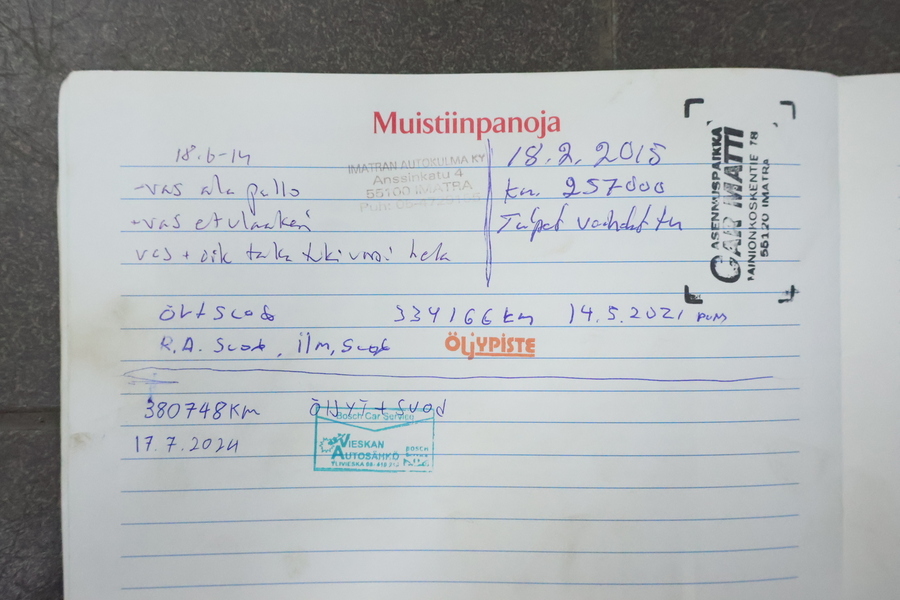 Muistiinpanoja
18.6-14
-vas ala pallo
-vas etulaakeri
vas + oik taka tukivarsi hela
IMATRAN AUTOKULMA KY
Anssinkatu 4
55100 IMATRA
18.2.2015
km. 257000
Talpat vaihdettu
ASENNUSPAIKKA
CAR MATTI
TAINIONKOSKENTIE 78
55120 IMATRA
Öl+Suod 334166 km 14.5.2021
R.A. Suod, ilm, Suod
ÖLJYPISTE
380748 Km ÖLJYT+Suod
17.7.2024
Bosch Car Service
VIESKAN
AUTOSÄHKÖ